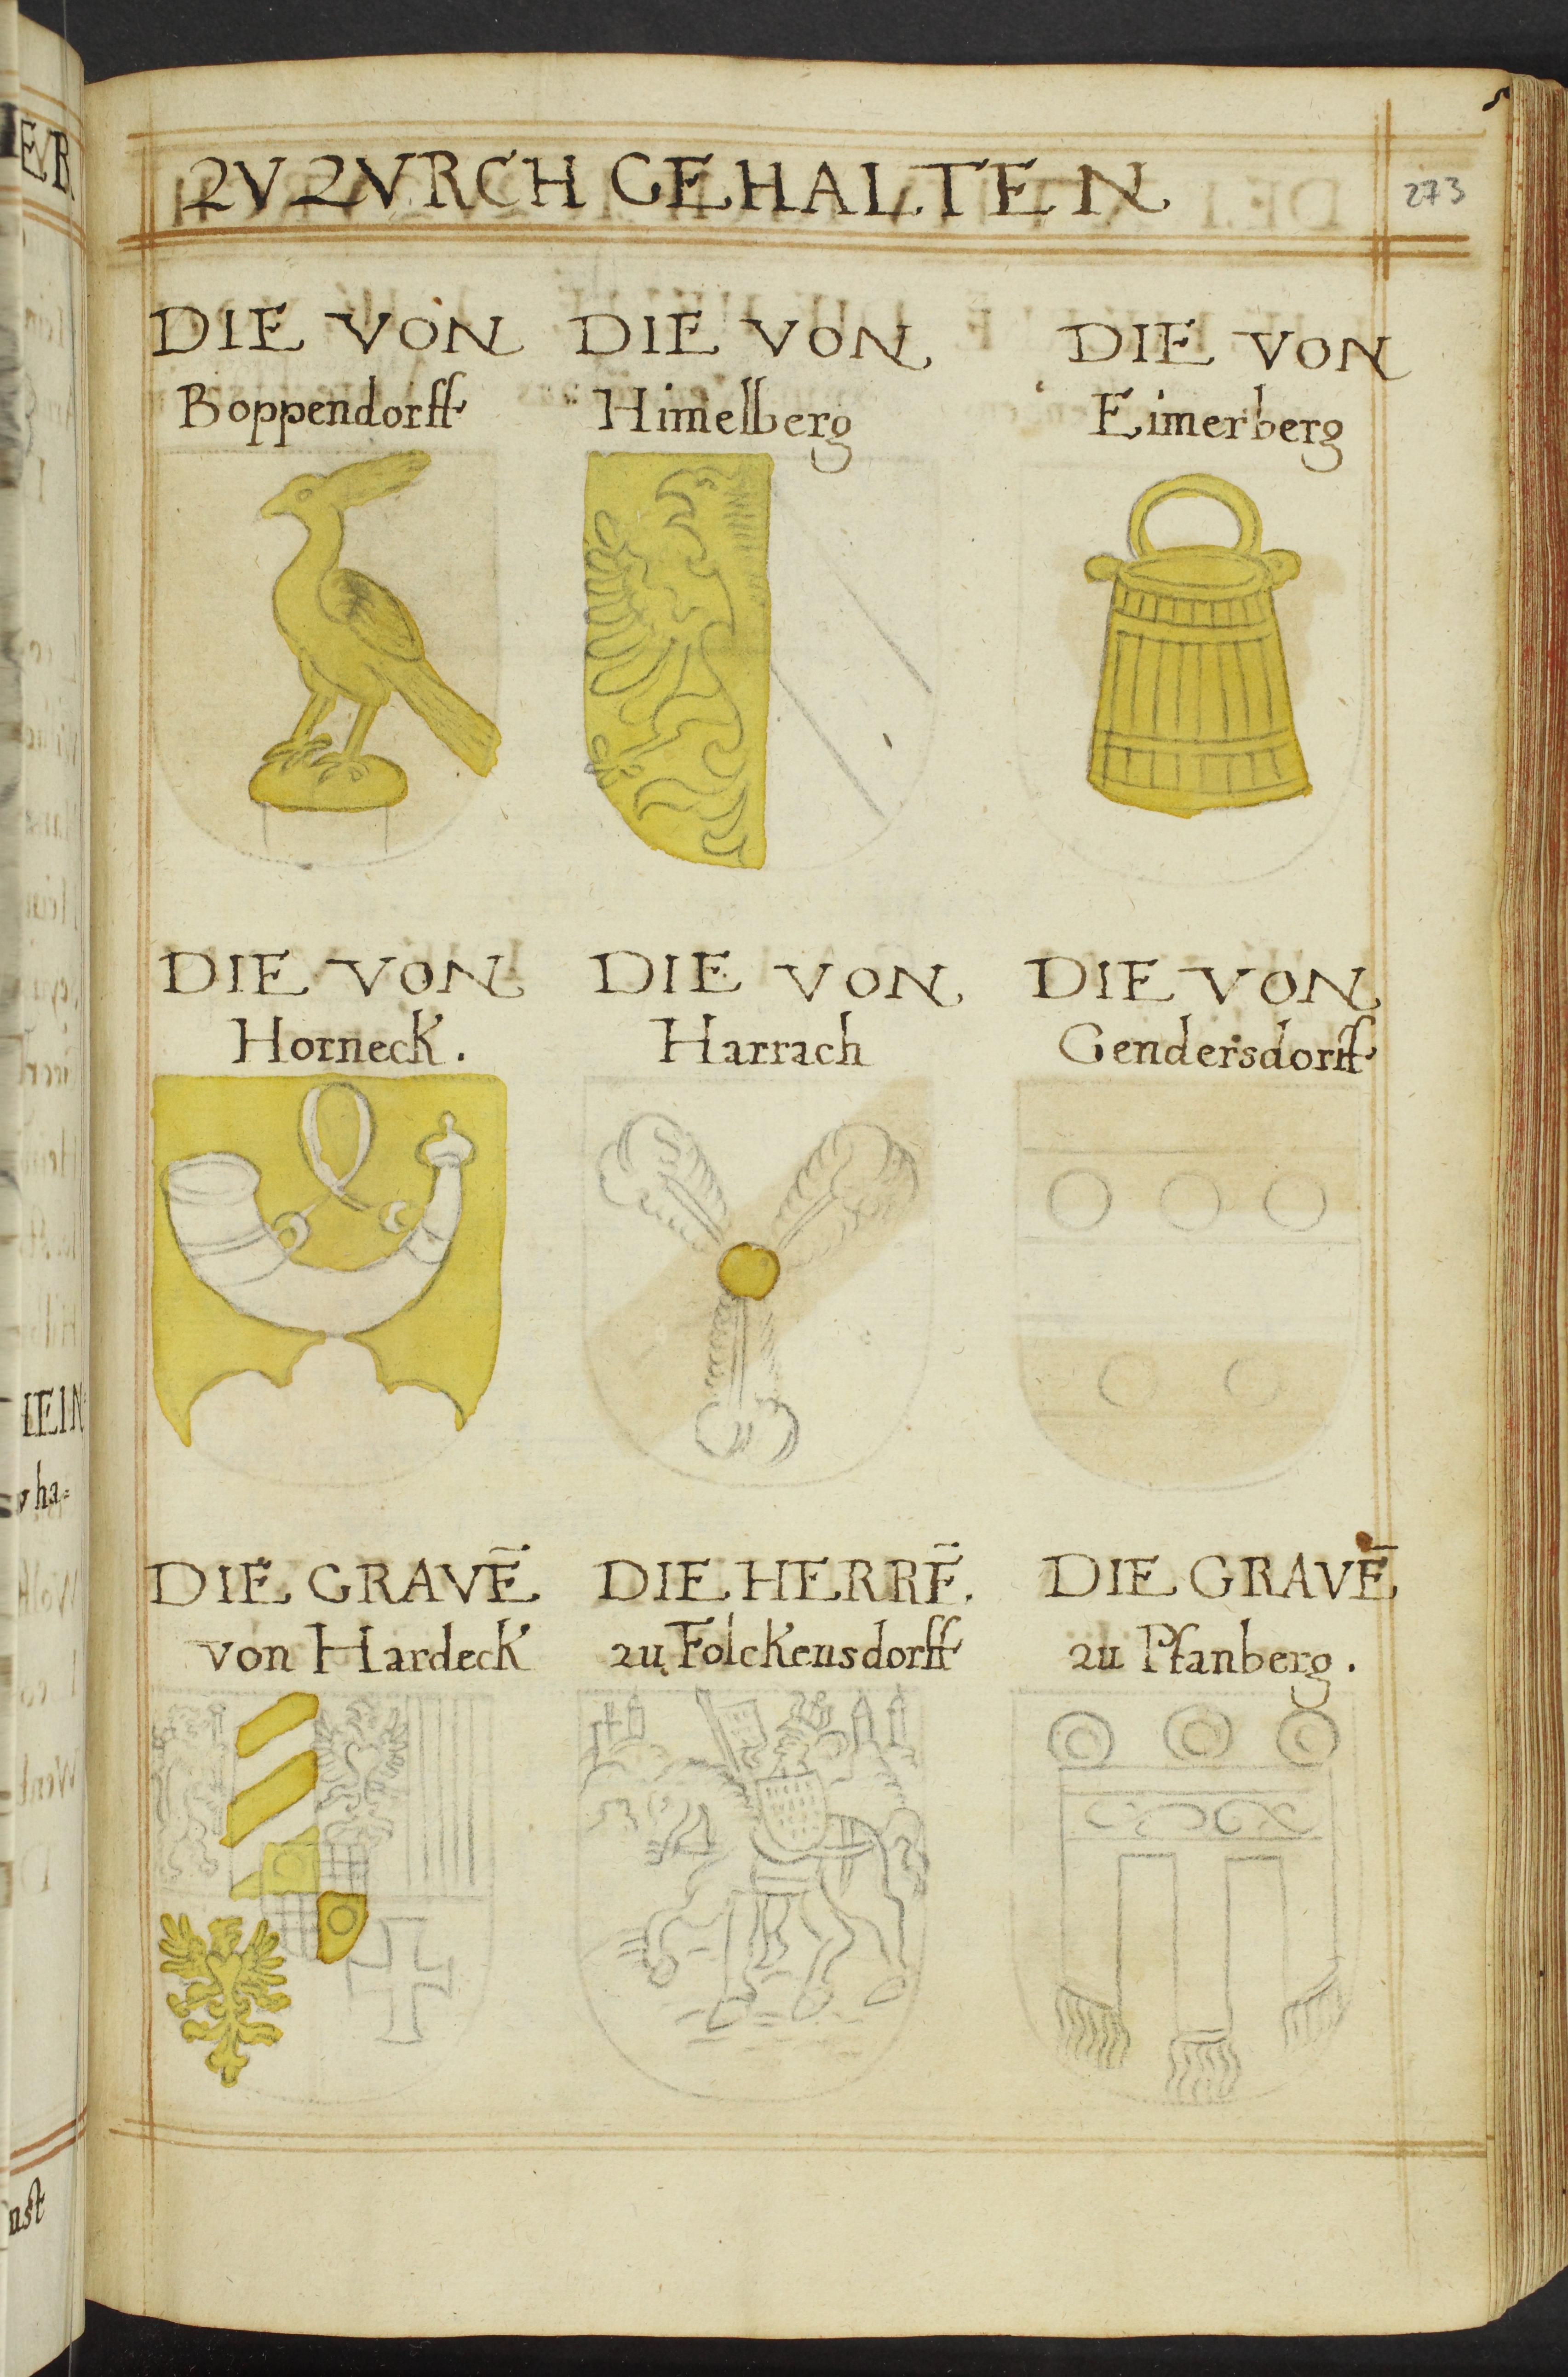 2V 2VRCH GEHALTEN
273
DIE VON
Boppendorff
DIE VON
Himelberg
DIE VON
Eimerberg
DIE VON
Horneck.
DIE VON
Harrach
DIE VON
Gendersdorff
DIE GRAVE̅
von Hardeck
DIE HERRE̅.
zu Folckensdorff
DIE GRAVE̅
zu Pfanberg.
EVR
IEIN
ha=
nst